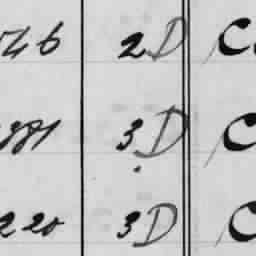 746 2D C
381 3D C
220 3D C